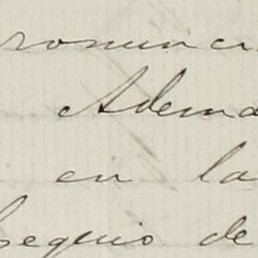 ronunci
Adema
en la
bsequio de